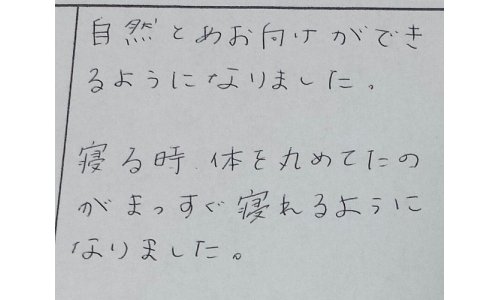 自然とめお向けができ
るようになりました。
寝る時、体を丸めてたの
がまっすぐ寝れるように
なりました。